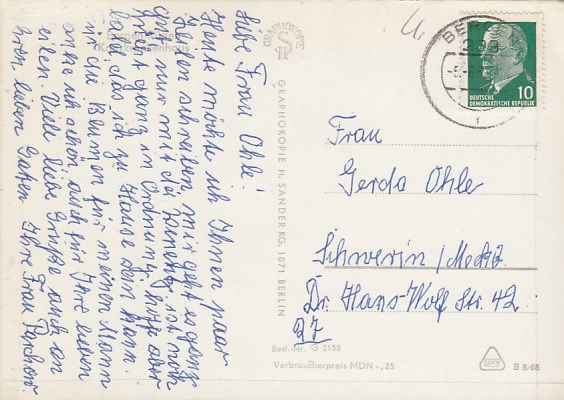 Liebe Frau Ohle!
Heute möchte ich Ihnen paar
Zeilen schreiben, mir geht es ganz
gut nur mit der ist noch
nicht ganz in Ordnung, hoffe aber
bald, das ich zu Hause sein kann.
die Blumen für meinen Mann
danke ich schön, auch für Ihre lieben
Zeilen. Viele liebe Grüße auch an
Ihren lieben Gatten Ihre Frau
Krankenhaus
GRAPHOKOPIE
GRAPHOKOPIE H. SANDER KG, 1071 BERLIN
BERLIN
DEUTSCHE
DEMOKRATISCHE REPUBLIK
10
Frau
Gerda Ohle
Schwerin/Meckl.
Dr. Hans-Wolf Str. 42
27
Best.-Nr. G 2158
Verbraucherpreis MDN -,25
B 8/68